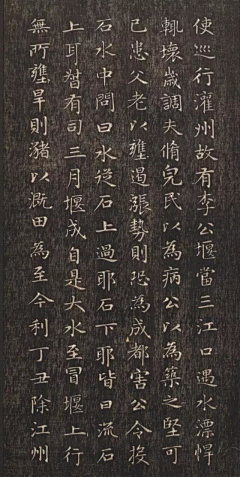 使巡行灌州故有李公堰當三江口遇水漂悍
輒壞歲調夫脩完民以為病公以為築之堅可
已患父老以壅遏張勢則恐為成都害公令投
石水中問曰水從石上過耶石下耶皆曰流石
上耳督有司三月堰成自是大水至冒堰上行
無所壅旱則豬以溉田為至今利丁丑除江州